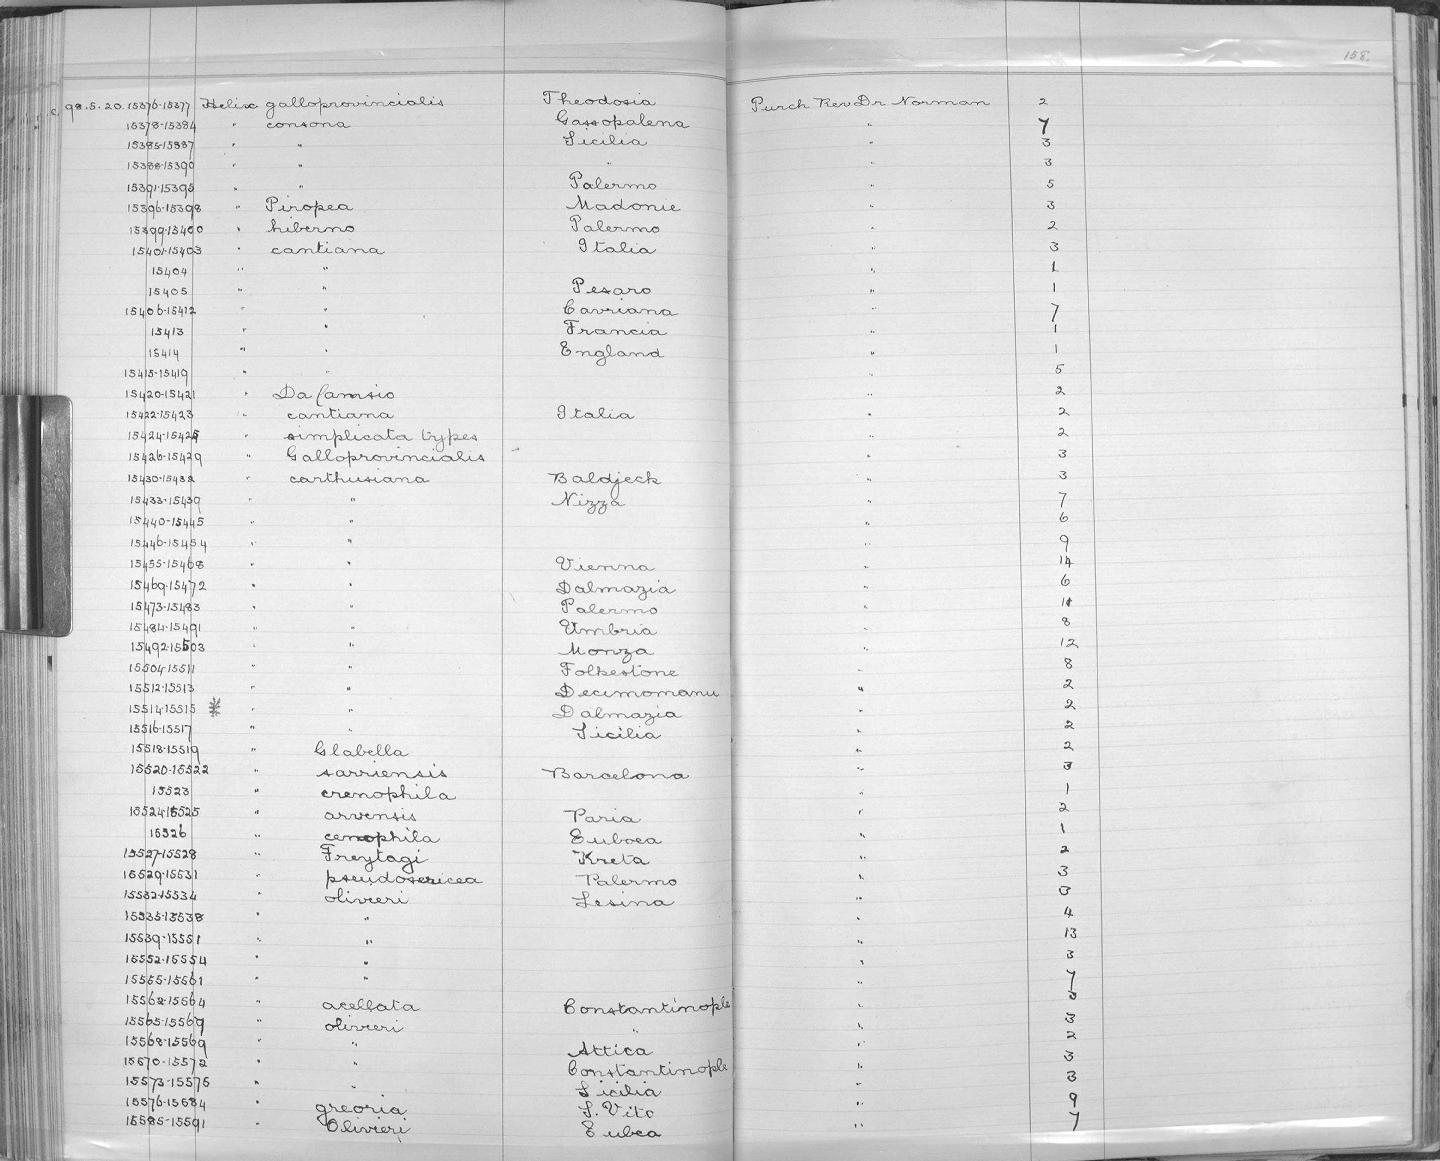 158.
98.5.20.15376-15377 Helix galloprovincialis Theodosia Purch Rev Dr Norman 2
15378-15384 " consona Gassopalena " 7
15385-15387 " " Sicilia " 3
15388-15390 " " " " 3
15391-15395 " " Palermo " 5
15396-15398 " Piropea Madonie " 3
15399-15400 " hiberno Palermo " 2
15401-15403 " cantiana Italia " 3
15404 " " " 1
15405 " " Pesaro " 1
15406-15412 " " Cavriana " 7
15413 " " Francia " 1
15414 " " England " 1
15415-15419 " " " 5
15420-15421 " Da Camsio " 2
15422-15423 " cantiana Italia " 2
15424-15425 " simplicata types " 2
15426-15429 " Galloprovincialis " 3
15430-15432 " carthusiana Baldjeck " 3
15433-15439 " " Nizza " 7
15440-15445 " " " 6
15446-15454 " " " 9
15455-15468 " " Vienna " 14
15469-15472 " " Dalmazia " 6
15473-15483 " " Palermo " 11
15484-15491 " " Umbria " 8
15492-15503 " " Monza " 12
15504-15511 " " Folkestone " 8
15512-15513 " " Decimomanu " 2
15514-15515 * " " Dalmazia " 2
15516-15517 " " Sicilia " 2
15518-15519 " Glabella " 2
15520-15522 " sarriensis Barcelona " 3
15523 " crenophila " 1
15524-15525 " arvensis Paria " 2
15526 " cenophila Euboea " 1
15527-15528 " Freytagi Kreta " 2
15529-15531 " pseudosericea Palermo " 3
15532-15534 " olivieri Lesina " 3
15535-15538 " " " 4
15539-15551 " " " 13
15552-15554 " " " 3
15555-15561 " " " 7
15562-15564 " acellata Constantinople " 3
15565-15569 " olivieri " " 3
15568-15569 " " Attica " 2
15570-15572 " " Constantinople " 3
15573-15575 " " Sicilia " 3
15576-15584 " greoria S. Vito " 9
15585-15591 " Olivieri Eubea " 7